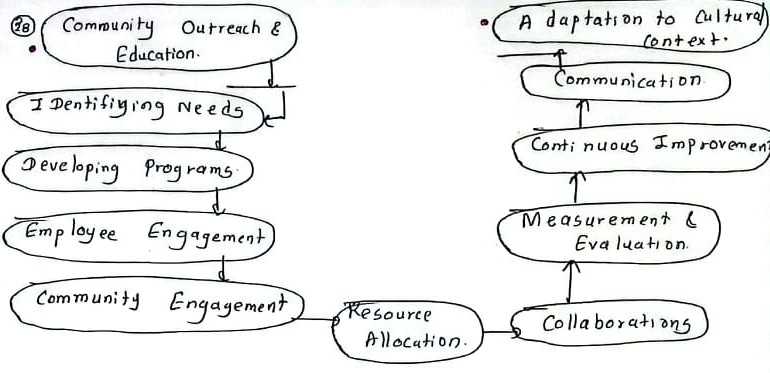 28
Community Outreach &
Education.
IDentifiying Needs
Developing Programs.
Employee Engagement
Community Engagement
Resource
Allocation.
Collaborations
Measurement &
Evaluation.
Continuous Improvement
Communication.
Adaptation to Cultural
Context.